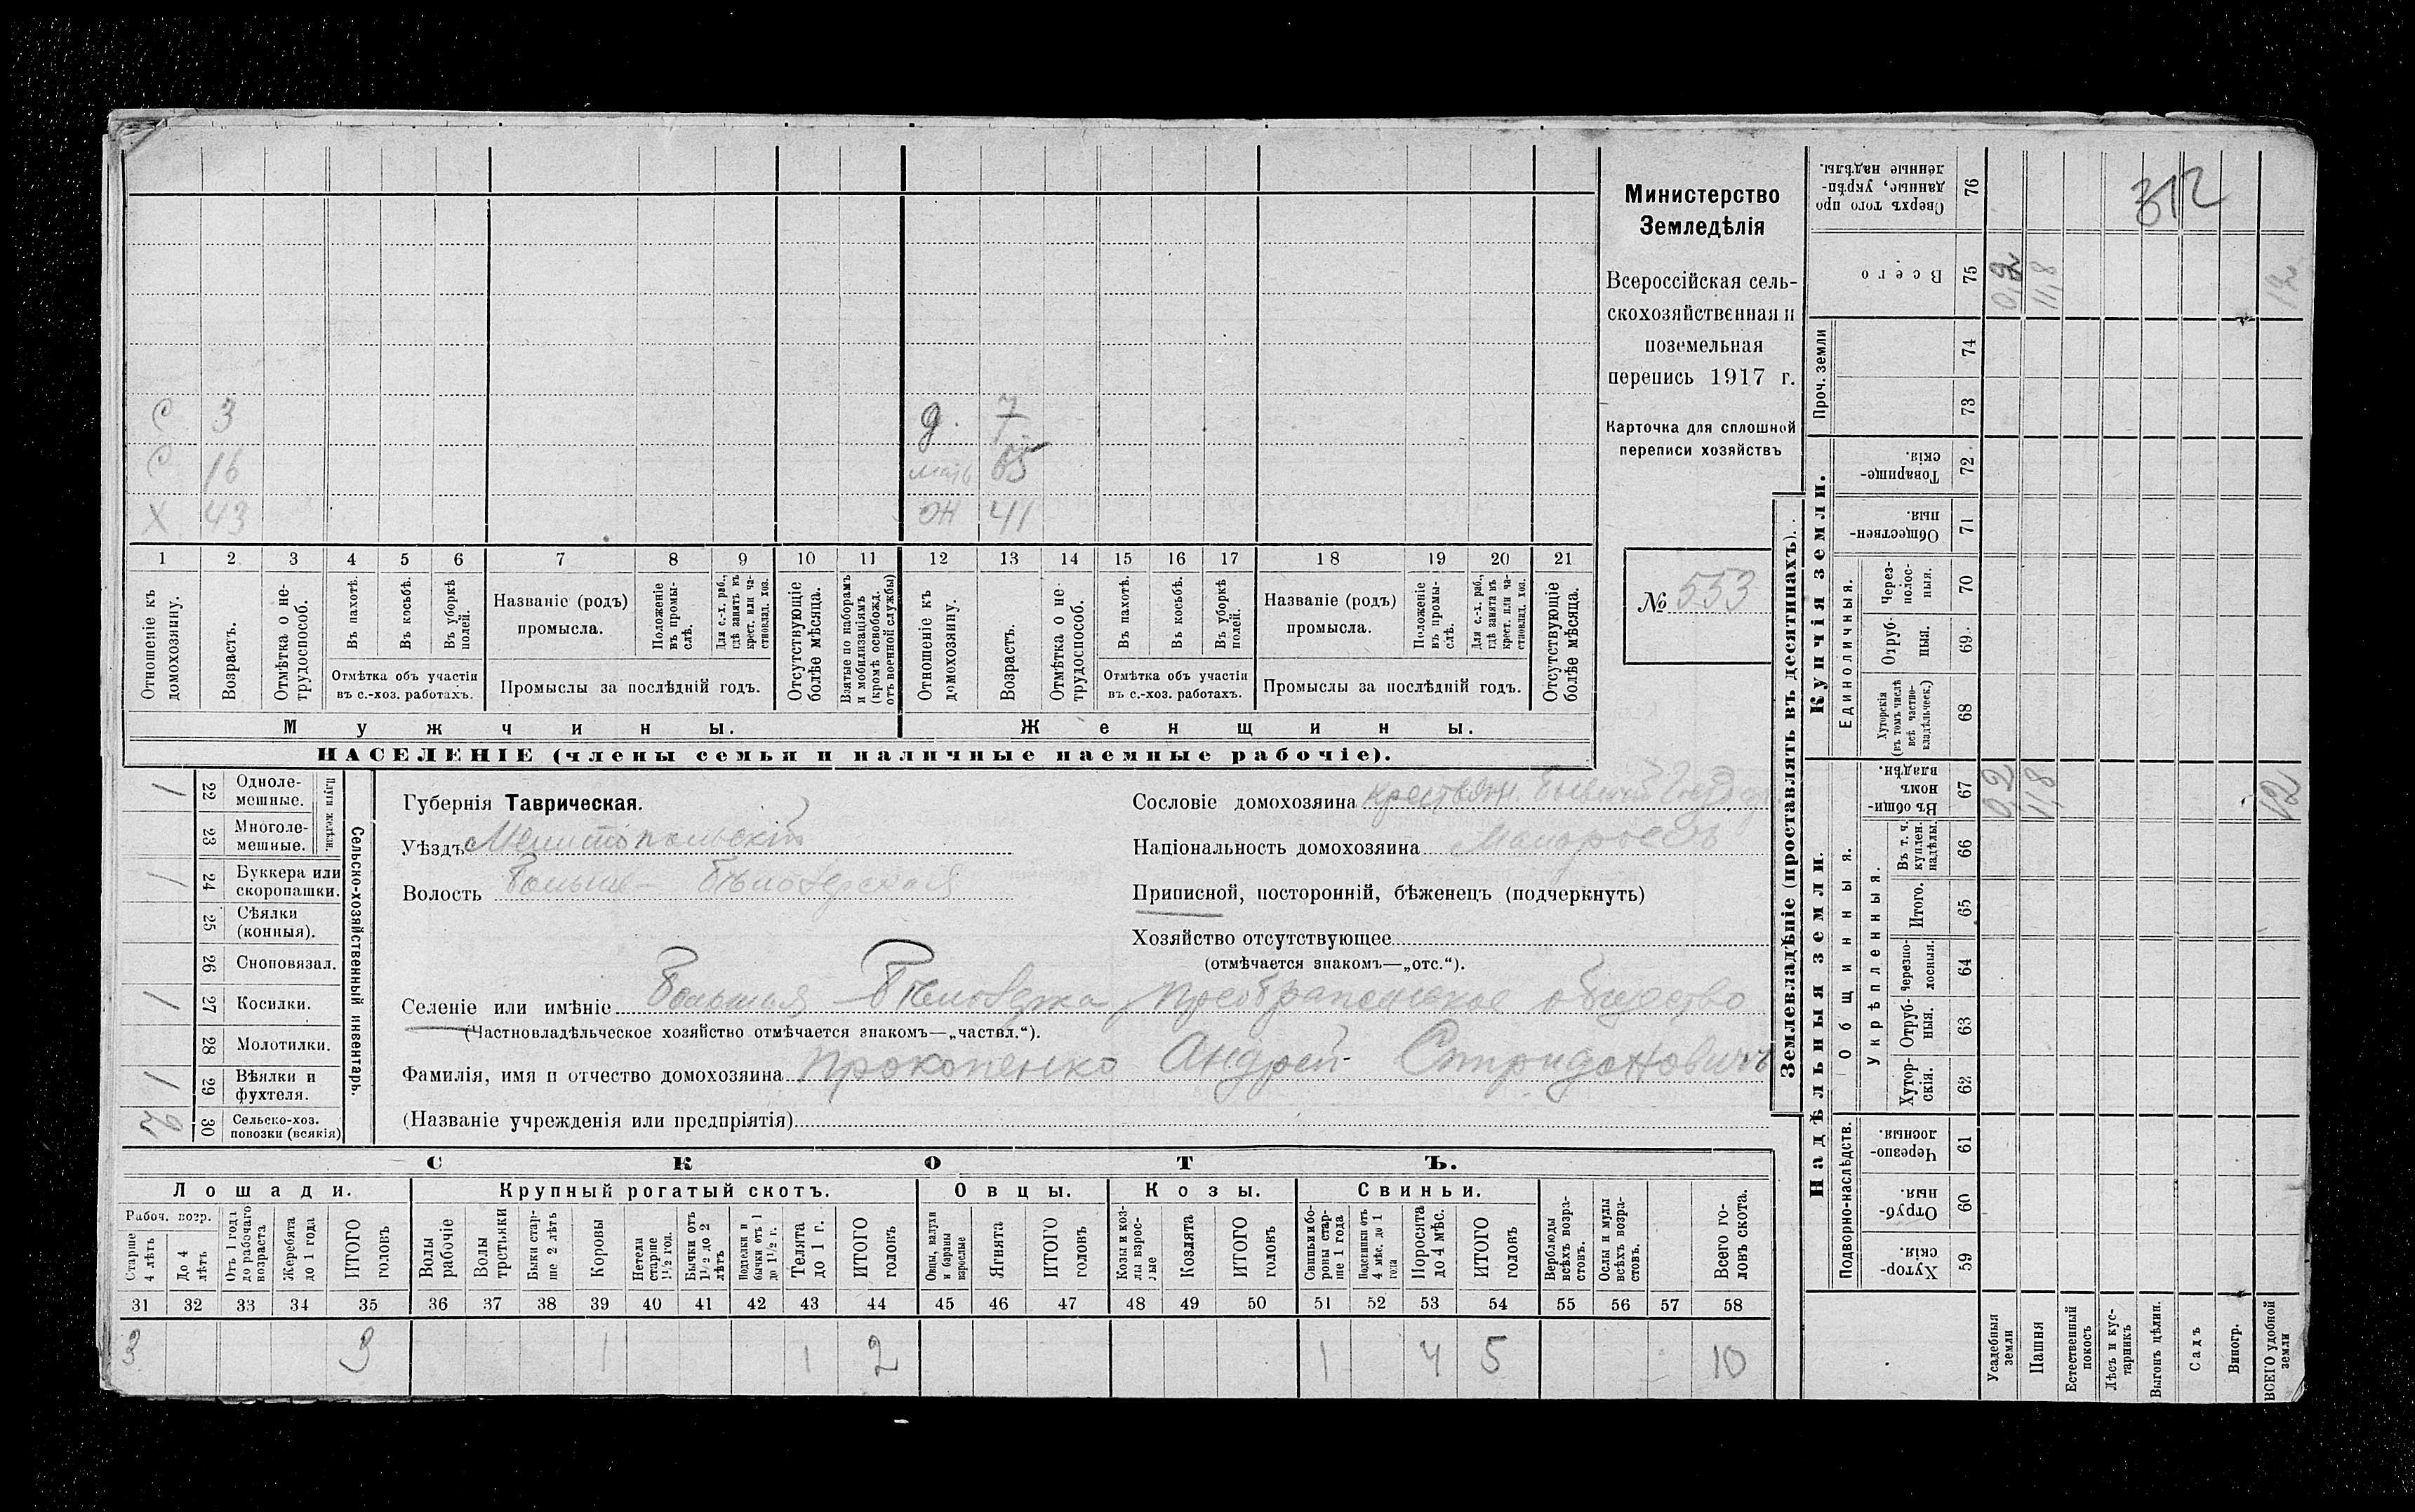 Министерство
Земледѣлія
Всероссійская сель-
скохозяйственная и
поземельная
перепись 1917 г.
Карточка для сплошной
переписи хозяйствъ
№ 553
312
С 3 д. 7
С 16 мать 65
Х 43 Ж 41
1 2 3 4 5 6 7 8 9 10 11 12 13 14 15 16 17 18 19 20 21
Отношеніе къ домохозяину.
Возрастъ.
Отмѣтка о не-трудоспособ.
Въ пахотѣ.
Въ косьбѣ.
Въ уборкѣ полей.
Отмѣтка объ участіи
въ с.-хоз. работахъ.
Названіе (родъ)
промысла.
Положеніе въ промы-слѣ.
Для с.-х. раб., гдѣ занятъ къ крест. или ча-стновлад. хоз.
Промыслы за послѣдній годъ.
Отсутствующіе болѣе мѣсяца.
Взятые по наборамъ и мобилизаціямъ (кромѣ освобожд. отъ военной службы)
Отношеніе къ домохозяину.
Возрастъ.
Отмѣтка о не-трудоспособ.
Въ пахотѣ.
Въ косьбѣ.
Въ уборкѣ полей.
Отмѣтка объ участіи
въ с.-хоз. работахъ.
Названіе (родъ)
промысла.
Положеніе въ промы-слѣ.
Для с.-х. раб., гдѣ занята въ крест. или ча-стновлад. хоз.
Промыслы за послѣдній годъ.
Отсутствующіе болѣе мѣсяца.
Мужчины.
Женщины.
НАСЕЛЕНІЕ (члены семьи и наличные наемные рабочіе).
Сельско-хозяйственный инвентарь.
Плуги желѣзн.
1 22 Одноле-мешные.
23 Многоле-мешные.
1 24 Буккера или скоропашки.
25 Сѣялки (конныя).
26 Сноповязал.
1 27 Косилки.
28 Молотилки.
1 29 Вѣялки и фухтеля.
30 Сельско-хоз. повозки (всякія)
Губернія Таврическая.
Уѣздъ Мелитопольскій
Волость Больше-Бѣлозерская
Сословіе домохозяина крестьян. бывшій
Національность домохозяина Малороссъ
Приписной, посторонній, бѣженецъ (подчеркнуть)
Хозяйство отсутствующее
(отмѣчается знакомъ—„отс.“).
Селеніе или имѣніе Большая Бѣлозерка, Преображенское общество
(Частновладѣльческое хозяйство отмѣчается знакомъ—„частвл.“).
Фамилія, имя и отчество домохозяина Прокопенко Андрей Спридоновичъ
(Названіе учрежденія или предпріятія)
СКОТЪ.
Лошади. Крупный рогатый скотъ. Овцы. Козы. Свиньи.
Рабоч. возр.
Старше 4 лѣтъ
До 4 лѣтъ
Отъ 1 года до рабочаго возраста
Жеребята до 1 года
ИТОГО головъ
Волы рабочіе
Волы третьяки
Быки стар-ше 2 лѣтъ
Коровы
Нетели старше 1½ год.
Бычки отъ 1½ до 2 лѣтъ
Подтелки и бычки отъ 1 до 1½ г.
Телята до 1 г.
ИТОГО головъ
Овцы, валухи и бараны взрослые
Ягнята
ИТОГО головъ
Козы и коз-лы взрос-лые
Козлята
ИТОГО головъ
Свиньи и бо-ровы стар-ше 1 года
Подсвинки отъ 4 мѣс. до 1 года
Поросята до 4 мѣс.
ИТОГО головъ
Верблюды всѣхъ возра-стовъ.
Ослы и мулы всѣхъ возра-стовъ.
Всего го-ловъ скота.
31 32 33 34 35 36 37 38 39 40 41 42 43 44 45 46 47 48 49 50 51 52 53 54 55 56 57 58
3 3 1 1 2 1 4 5 10
Землевладѣніе (проставлять въ десятинахъ).
Сверхъ того про-данные, укрѣп-ленные надѣлы. 76
Всего 75 0,2 11,8 12
Проч. земли 74
73
Купчія земли.
Товарище-скія. 72
Обществен-ныя. 71
Единоличныя.
Через-полос-ныя. 70
Отруб-ныя. 69
Хуторскія (въ томъ числѣ всѣ частно-владѣльческ.) 68
Надѣльныя земли.
Общинныя.
Въ общин-номъ владѣн. 67 0,2 11,8 12
Укрѣпленныя.
Въ т. ч. куплен. надѣлы. 66
Итого. 65
Черезпо-лосныя. 64
Отруб-ныя. 63
Хутор-скія. 62
Подворно-наслѣдств.
Черезпо-лосныя. 61
Отруб-ныя. 60
Хутор-скія. 59
Усадебныя земли
Пашня
Естественный покосъ
Лѣсъ и кус-тарникъ
Выгонъ цѣлин.
Садъ
Виногр.
ВСЕГО удобной земли